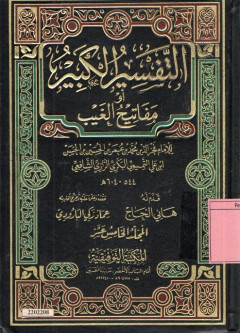 التفسير الكبير
أو
مفاتيح الغيب
للإمام فخر الدين محمد بن عمر بن الحسين بن الحسن
ابن علي التميمي البكري الرازي الشافعي
٥٤٤ - ٦٠٤ هـ
قدم له
هاني الحاج
عماد زكي البارودي
المجلد الخامس عشر
المكتبة التوفيقية
2202208